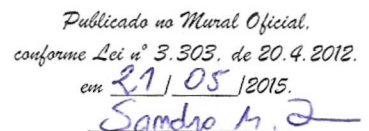 Publicado no Mural Oficial,
conforme Lei nº 3.303, de 20.4.2012.
em 21 / 05 /2015.
Sandra M.